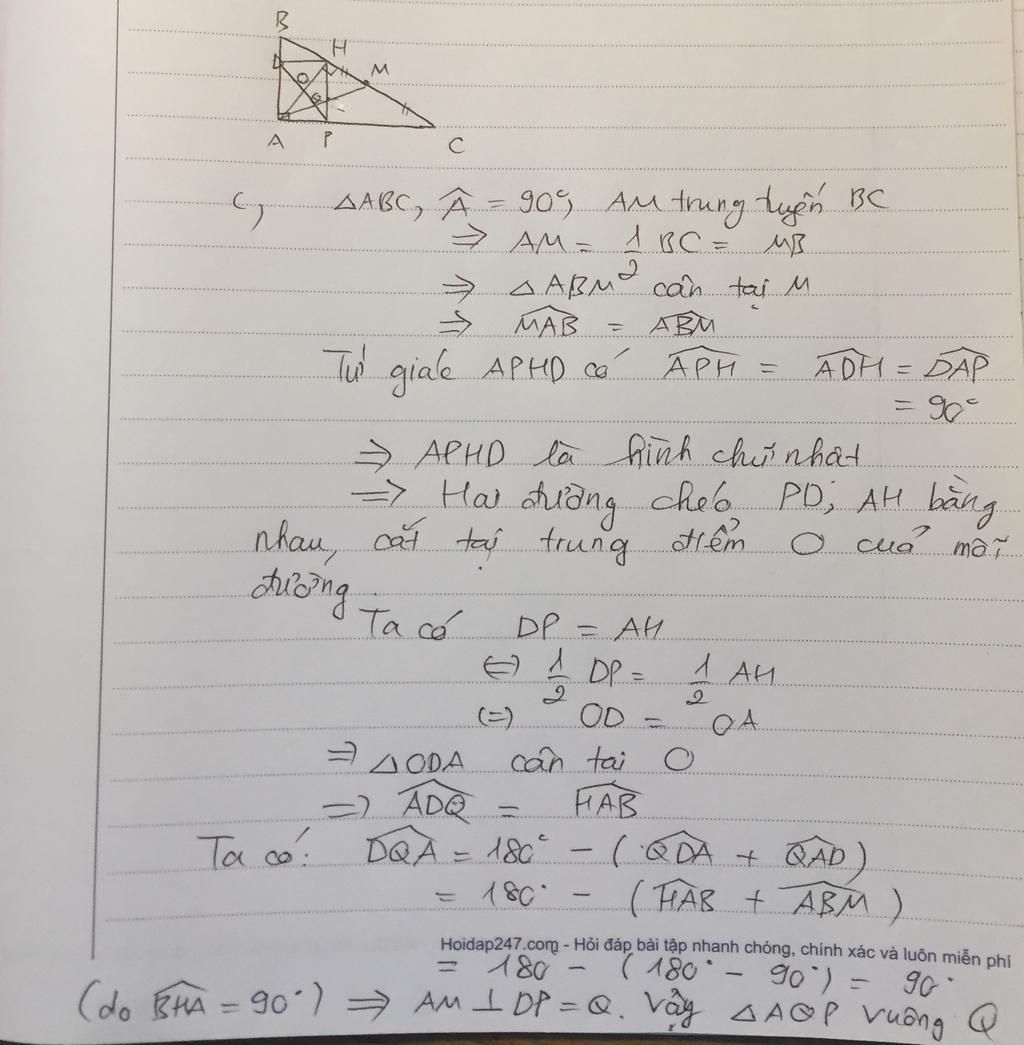 B
H
D
M
O
Q
A P C
c, ΔABC, Â = 90°, AM trung tuyến BC
=> AM = 1/2 BC = MB
=> ΔABM cân tại M
=> MAB = ABM
Tứ giác APHD có APH = ADH = DAP
= 90°
=> APHD là hình chữ nhật
=> Hai đường chéo PD; AH bằng
nhau, cắt tại trung điểm O của mỗi
đường.
Ta có DP = AH
(=) 1/2 DP = 1/2 AH
(=) OD = OA
=> ΔODA cân tai O
=> ADQ = HAB
Ta có: DQA = 180° - (QDA + QAD)
= 180° - (HAB + ABM)
Hoidap247.com - Hỏi đáp bài tập nhanh chóng, chính xác và luôn miễn phí
= 180 - (180° - 90°) = 90°
(do BHA = 90°) => AM ⊥ DP = Q. Vậy ΔAQP vuông Q